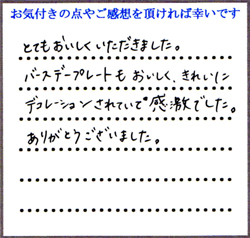 お気付きの点やご感想を頂ければ幸いです
とてもおいしくいただきました。
バースデープレートもおいしく、きれいに
デコレーションされていて感激でした。
ありがとうございました。